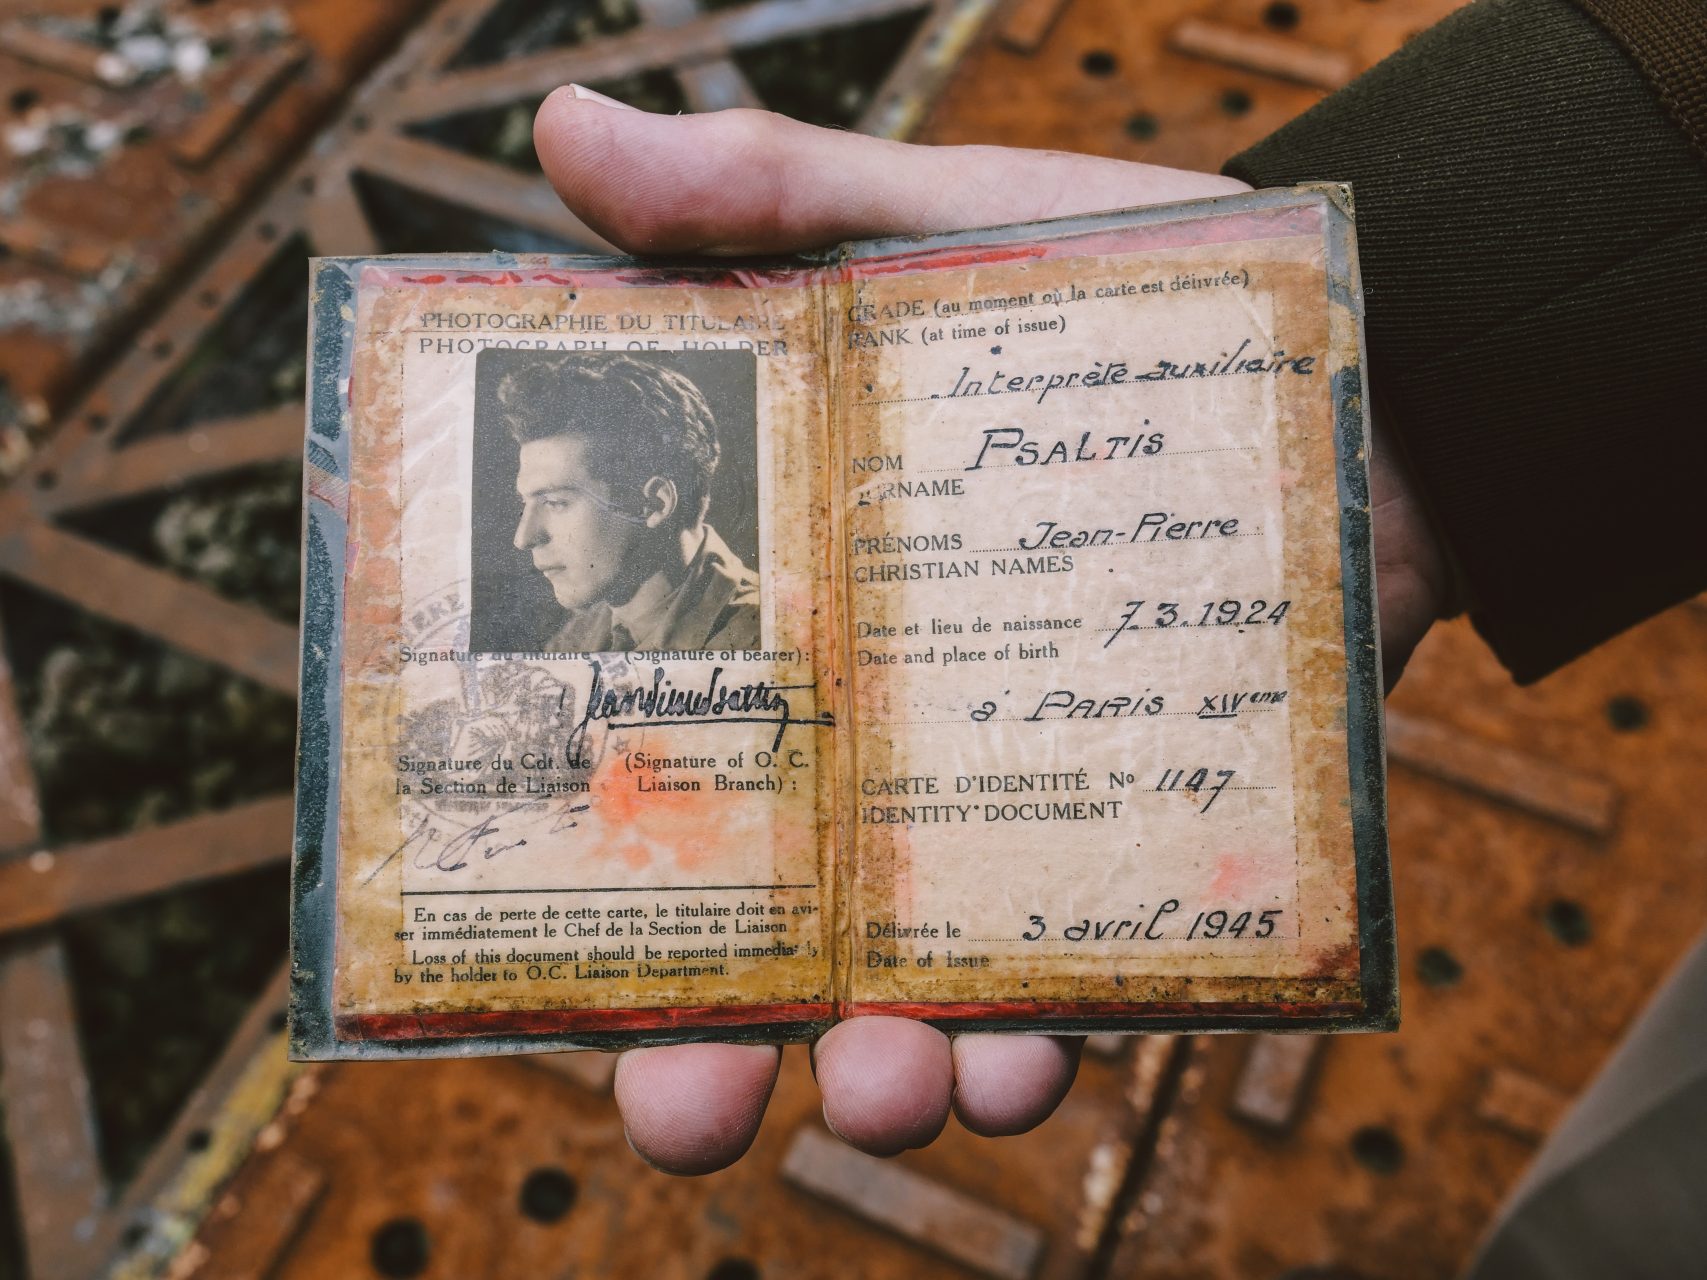 PHOTOGRAPHIE DU TITULAIRE
PHOTOGRAPH OF HOLDER
Signature du titulaire (Signature of bearer):
Signature du Cdt. de
la Section de Liaison
(Signature of O. C.
Liaison Branch) :
En cas de perte de cette carte, le titulaire doit en avi-
ser immédiatement le Chef de la Section de Liaison
Loss of this document should be reported immediately
by the holder to O.C. Liaison Department.
GRADE (au moment où la carte est délivrée)
RANK (at time of issue)
Interprète auxiliaire
NOM PSALTIS
SURNAME
PRÉNOMS Jean-Pierre
CHRISTIAN NAMES
Date et lieu de naissance 7.3.1924
Date and place of birth
à PARIS XIVeme
CARTE D'IDENTITÉ No 1147
IDENTITY DOCUMENT
Délivrée le 3 avril 1945
Date of Issue